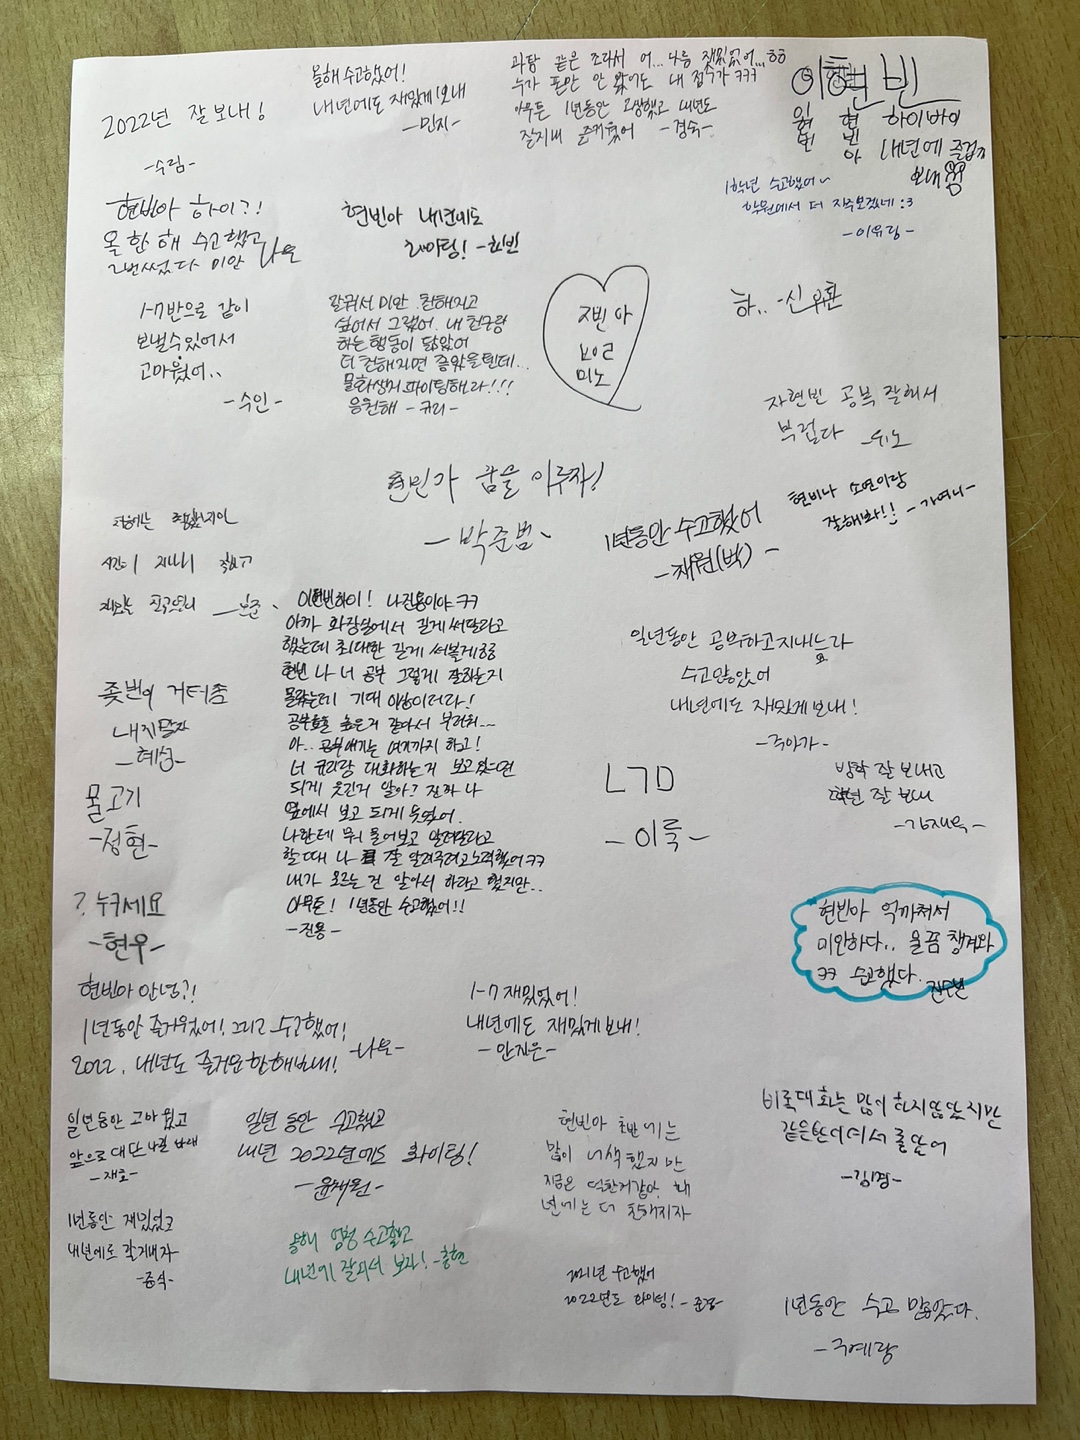 2022년 잘 보내!
-수림-
올해 수고했어!
내년에도 재밌게 보내
-민지-
과탐 같은 조라서 어... 나름 재밌었어...ㅎㅎ
누가 폰만 안 했어도 내 점수가 ㅋㅋㅋ
아무튼 1년동안 고생했고 내년도
잘지내 즐거웠어 -경숙-
이현빈
현빈아 하이바이
내년에 즐겁게
보내
1학년 수고했어~
학원에서 더 자주보겠네 :3
-이유랑-
현빈아 하이?!
올 한 해 수고했고
2번썼다 미안 나은
현빈아 내년에도
화이팅! -한빈
1-7반으로 같이
보낼수있어서
고마웠어..
-수인-
갈궈서 미안 친해지고
싶어서 그랬어. 내 친구랑
하는 행동이 닮았어
더 친해지면 좋았을텐데...
물화생지 파이팅해라!!!
응원해 -규리-
하.. -신우혼
공부 잘해서
부럽다
현빈아 꿈을 이루자!
-박준범-
1년동안 수고했어
-재원(박)-
현비나 소연이랑
잘해봐!! -가여니-
처음에는
시간이 지나니
이현빈하이! 나진용이야ㅋㅋ
아까 화장실에서 길게 써달라고
했는데 최대한 길게 써볼게ㅎㅎ
현빈 나 너 공부 그렇게 잘하는지
몰랐는데 기대 이상이더라!
공부효율 높은거 같아서 부러워~~
아.. 공부얘기는 여기까지 하고!
너 규리랑 대화하는거 보고있으면
되게 웃긴거 알아? 진짜 나
옆에서 보고 되게 웃었어.
나한테 뭐 물어보고 알려달라고
할때 나 잘 알려주려고노력했어ㅋㅋ
내가 모르는 건 알아서 하라고 했지만..
아무튼! 1년동안 수고했어!!
-진용-
일년동안 공부하고지내느라
수고많았어
내년에도 재밌게 보내!
-주아가-
-혜성-
물고기
-정현-
L7D
-이룩-
방학 잘 보내고
학년 잘 보내
-강재욱-
? 누구세요
-현우-
현빈아 억까쳐서
미안하다.. 올끔 챙겨와
ㅋㅋ 수고했다.
현빈아 안녕?!
1년동안 즐거웠어! 그리고 수고했어!
2022. 내년도 즐거운 한해보내! -나은-
1-7 재밌었어!
내년에도 재밌게보내!
-안지은-
일년동안 고마웠고
-재호-
일년 동안 수고했고
내년 2022년에도 화이팅!
-윤재원-
현빈아 초반에는
많이 어색했지만
지금은 덜한거같아. 내
년에는 더 친해지자
비록대화는 많이 하지않았지만
같은반이여서 좋았어
-김경-
1년동안 재밌었고
내년에도 잘지내자
-중식-
올해 엄청 수고했고
내년에 잘돼서 보자! -홍현
2021년 수고했어
2022년도 화이팅! -준경-
1년동안 수고 많았다.
-구예랑